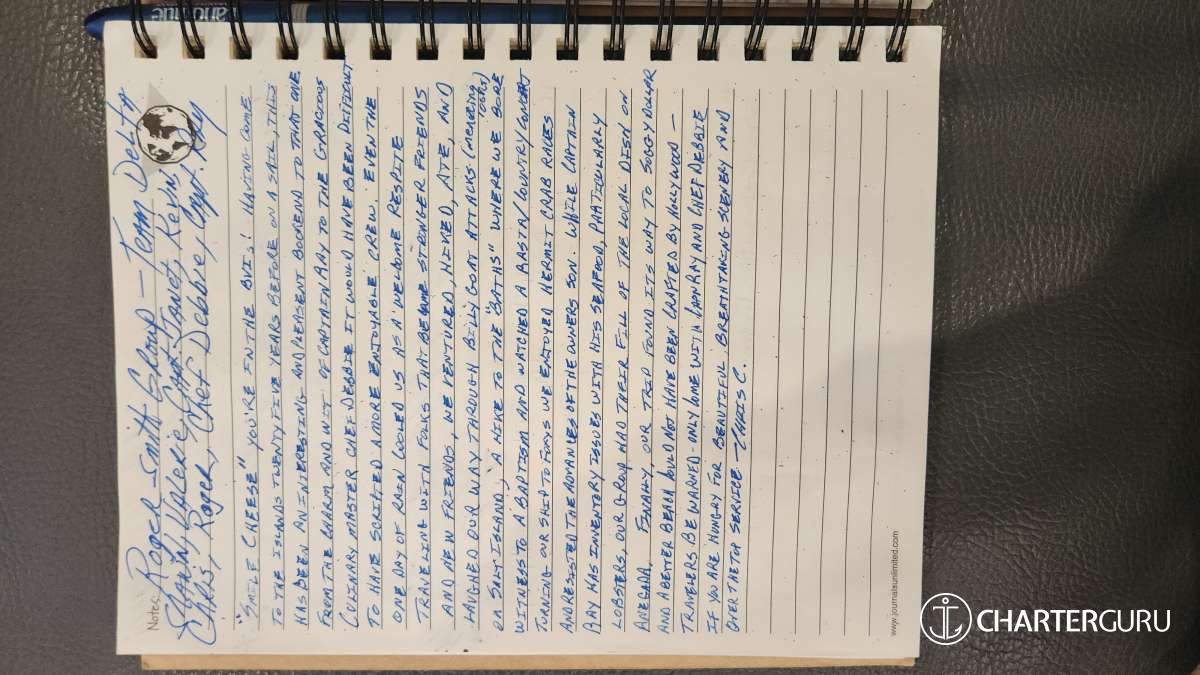 Notes:
Roger Smith Group - Team Delta
Stein, Valerie, Capt Janet, Kevin,
Chris, Roger, Chef Debbie, Capt. Ray
"SMILE CHEESE" YOU'RE IN THE BVI! HAVING COME
TO THE ISLANDS TWENTY FIVE YEARS BEFORE ON A SAIL, THIS
HAS BEEN AN INTERESTING AND PLEASENT BOOKEND TO THAT ONE
FROM THE CHARM AND WIT OF CAPTAIN RAY TO THE GRACIOUS
CULINARY MASTER CHEF DEBBIE IT WOULD HAVE BEEN DIFFICULT
TO HAVE SCRIPTED A MORE ENJOYABLE CREW. EVEN THE
ONE DAY OF RAIN COOLED US AS A WELCOME RESPITE
TRAVELING WITH FOLKS THAT BECAME STRONGER FRIENDS
AND NEW FRIENDS, WE VENTURED, HIKED, ATE, AND
LAUGHED OUR WAY THROUGH BILLY GOAT ATTACKS (MENACING LOOKS)
ON SALT ISLAND, A HIKE TO THE "BATHS" WHERE WE BORE
WITNESS TO A BAPTISM AND WATCHED A RASTA/COUNTRY CONCERT
TURNING OUR SHIP TO FOXYS WE ENJOYED HERMIT CRAB RACES
AND RESISTED THE ADVANCES OF THE OWNERS SON. WHILE CAPTAIN
RAY HAS INVENTORY ISSUES WITH HIS SEAFOOD, PARTICULARLY
LOBSTERS, OUR GROUP HAD THEIR FILL OF THE LOCAL DISH ON
ANEGADA. FINALLY, OUR TRIP FOUND ITS WAY TO SOGGY DOLLAR
AND A BETTER BEACH COULD NOT HAVE BEEN CRAFTED BY HOLLYWOOD -
TRAVELERS BE WARNED - ONLY COME WITH CAPN RAY AND CHEF DEBBIE
IF YOU ARE HUNGRY FOR BEAUTIFUL, BREATHTAKING SCENERY AND
OVER THE TOP SERVICE - CHRIS C.
www.journalsunlimited.com
CHARTERGURU